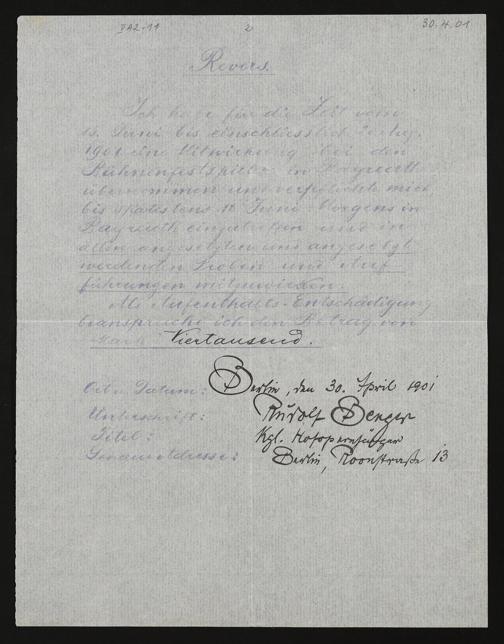 VA2-11
2
30.4.01
Revers.
Ich habe für die Zeit vom
15. Juni bis einschliesslich 20 Aug.
1901 eine Mitwirkung bei den
Bühnenfestspielen in Bayreuth
übernommen und verpflichte mich,
bis spätestens Juni Morgens in
Bayreuth einzutreffen und in
allen angesetzten und angesetzt
werdenden Proben und Auf
führungen mitzuwirken.
Als Aufenthalts-Entschädigung
beanspruche ich den Betrag von
Mark Viertausend.
Ort u. Datum: Berlin, den 30. April 1901
Unterschrift: Rudolf Berger
Titel: Kgl. Hofopernsänger
Genaue Adresse: Berlin, Roonstraße 13